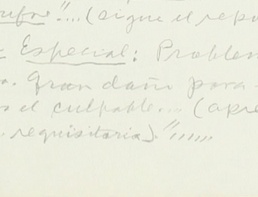 "..... (sigue el repa
Especial: Problem
. Gran daño para
el culpable... (apre
requisitoria)."......